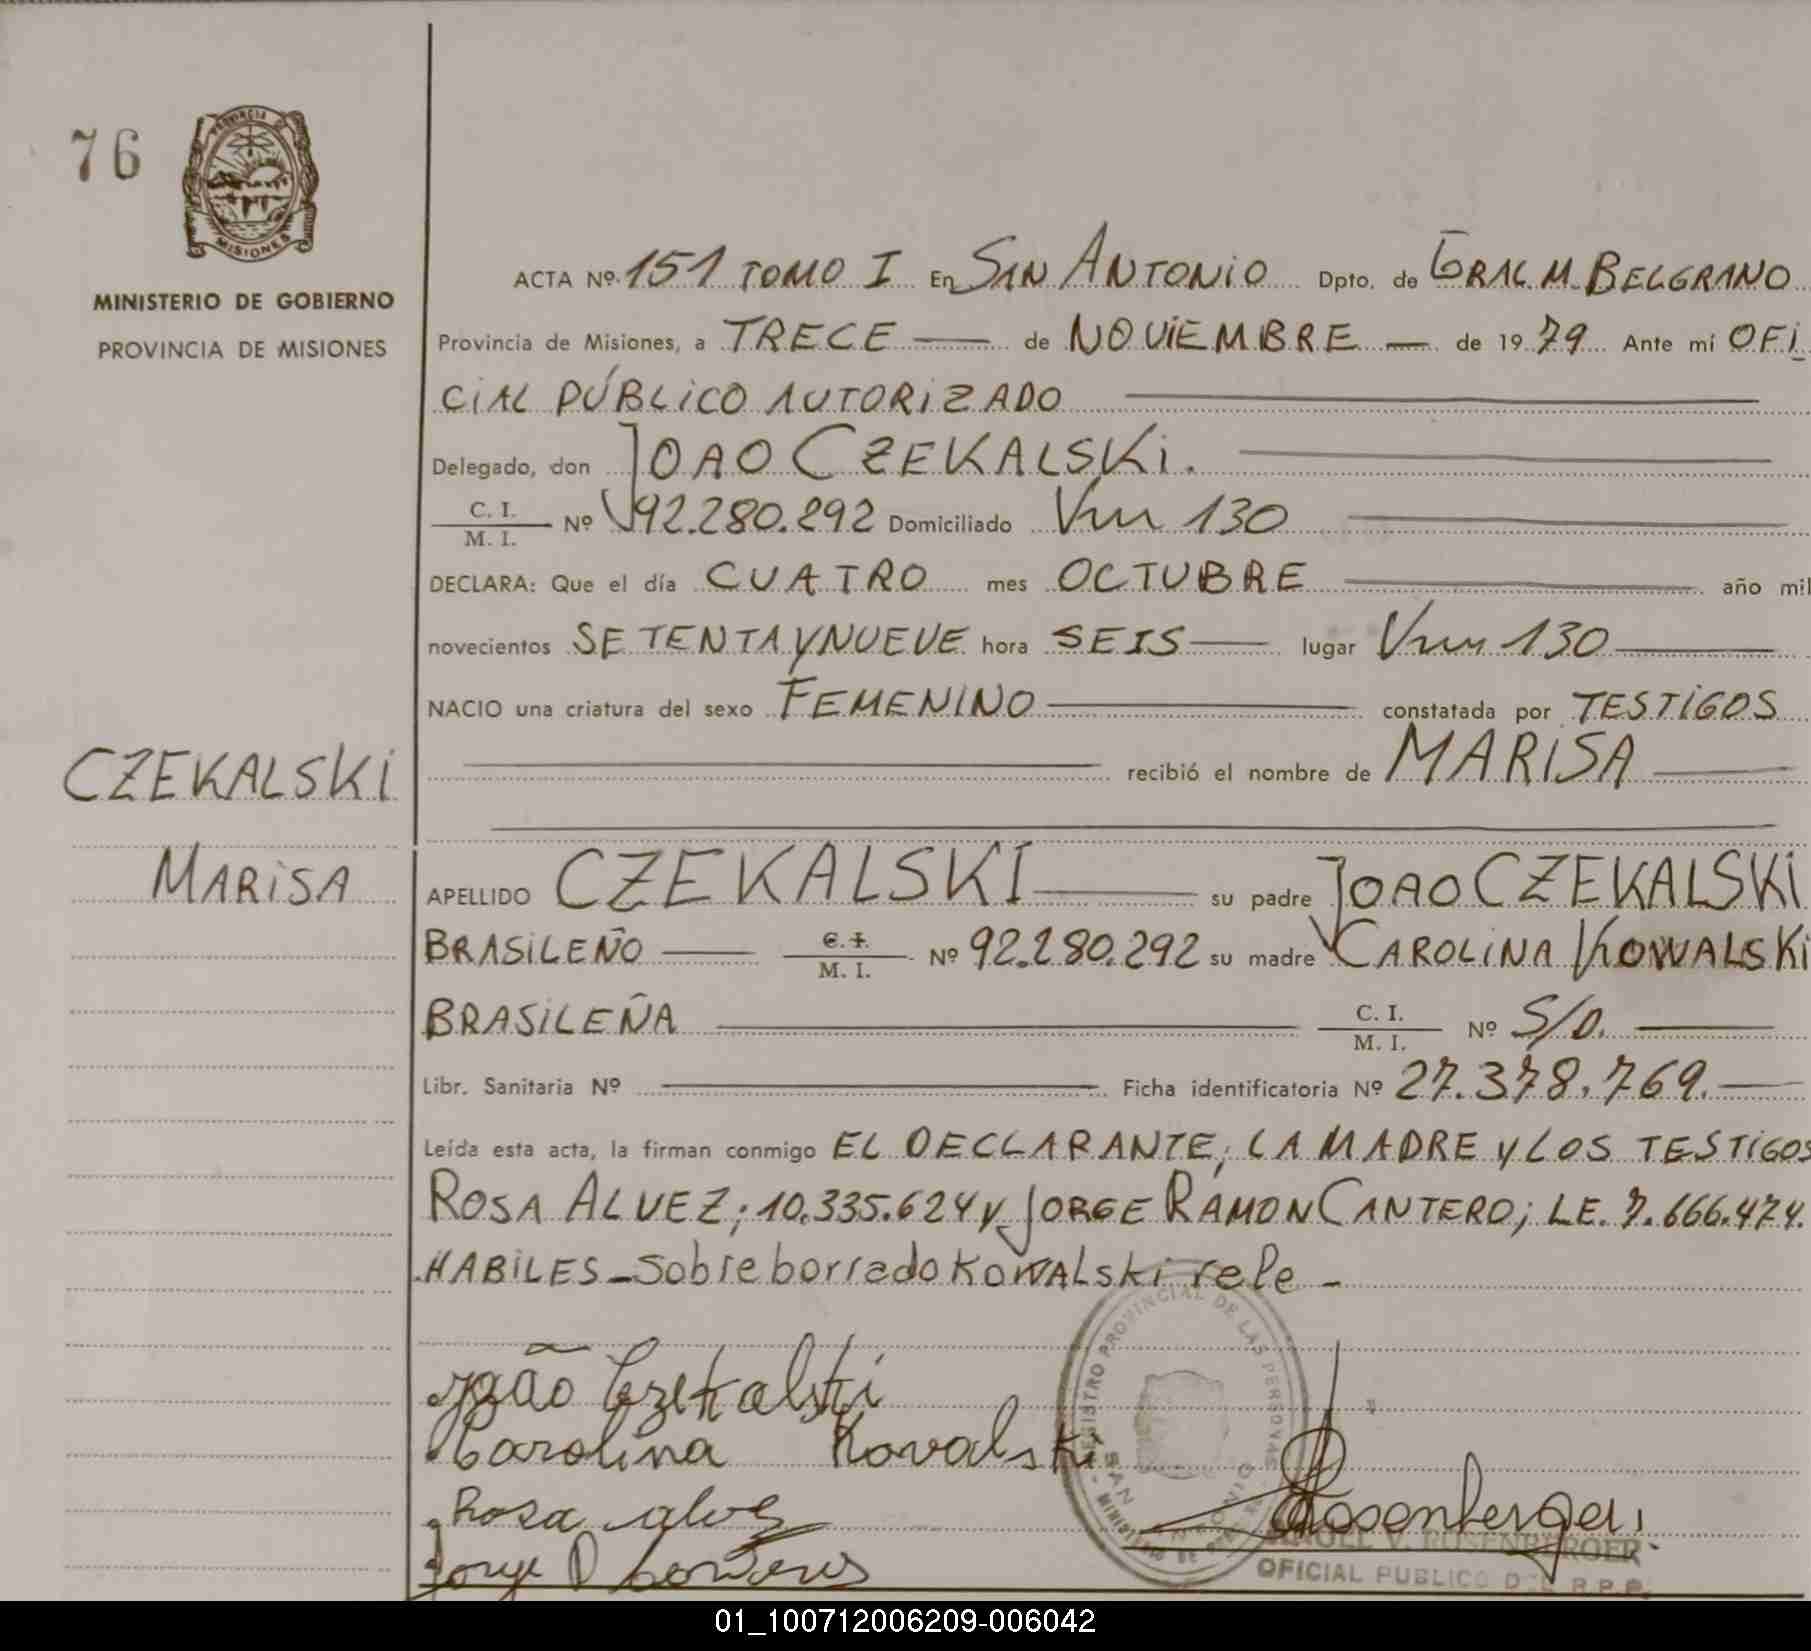 76
PROVINCIA DE
MISIONES
MINISTERIO DE GOBIERNO
PROVINCIA DE MISIONES
ACTA Nº 151 TOMO I En SAN ANTONIO Dpto. de GRAL. M. BELGRANO
Provincia de Misiones, a TRECE — de NOVIEMBRE — de 1979 Ante mí OFI
CIAL PÚBLICO AUTORIZADO
Delegado, don JOAO CZEKALSKI.
C. I.
M. I. Nº 92.280.292 Domiciliado 130
DECLARA: Que el día CUATRO mes OCTUBRE año mil
novecientos SETENTA Y NUEVE hora SEIS — lugar 130
NACIO una criatura del sexo FEMENINO constatada por TESTIGOS
recibió el nombre de MARISA
CZEKALSKI
MARISA
APELLIDO CZEKALSKI su padre JOAO CZEKALSKI
BRASILEÑO — C. I.
M. I. Nº 92.280.292 su madre CAROLINA KOWALSKI
BRASILEÑA C. I.
M. I. Nº S/D.
Libr. Sanitaria Nº Ficha identificatoria Nº 27.378.769.
Leída esta acta, la firman conmigo EL DECLARANTE, LA MADRE Y LOS TESTIGOS
ROSA ALVEZ; 10.335.624 y JORGE RAMON CANTERO; LE. 7.666.474.
HABILES - Sobre borrado KOWALSKI vale -
João Czekalski
Carolina Kovalski
Rosa alvez
Jorge
REGISTRO PROVINCIAL DE LAS PERSONAS
SAN ANTONIO
MINISTERIO DE GOBIERNO
Rosenberger
V. ROSENBERGER
OFICIAL PUBLICO DEL R.P.P.
01_100712006209-006042